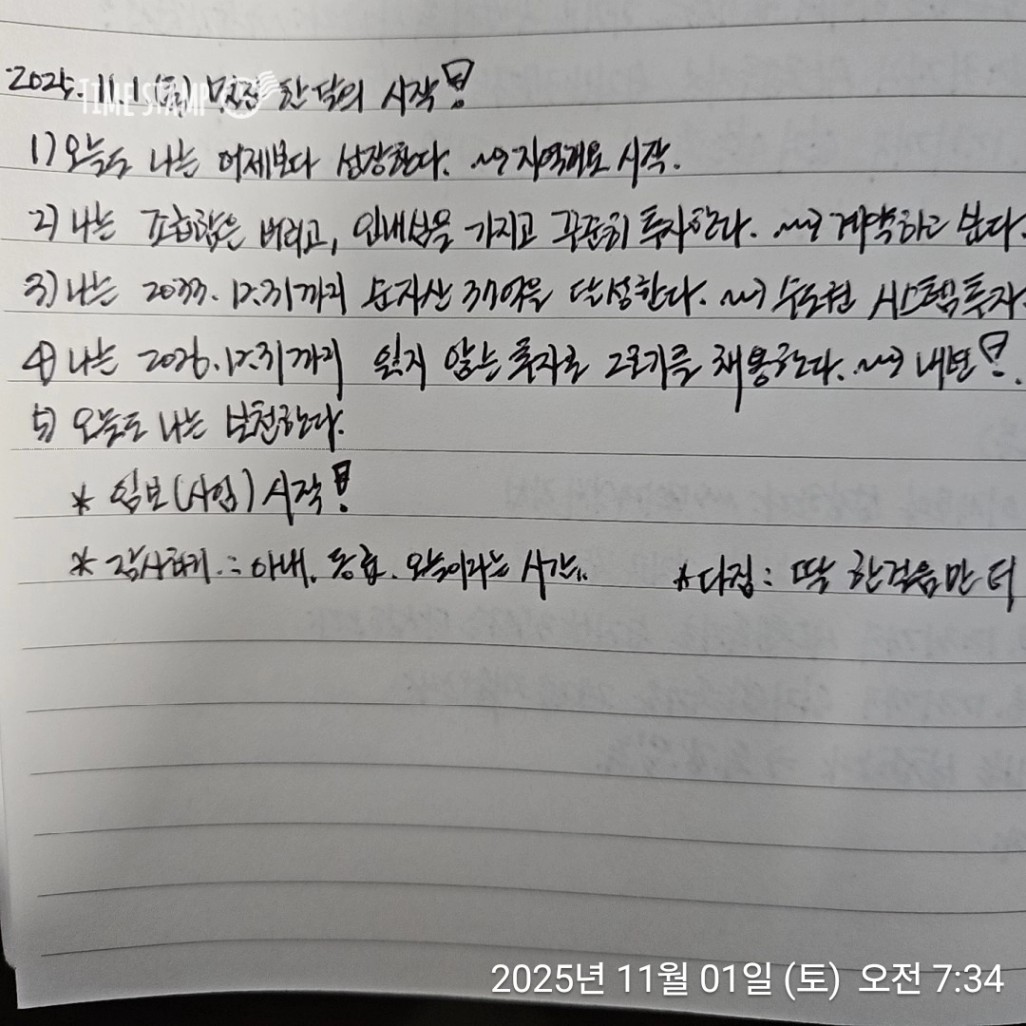 2025. 11. 1 (토) 멋진 한 달의 시작!
TIME STAMP
1) 오늘도 나는 어제보다 성장한다. ~> 지역개요 시작.
2) 나는 조급함은 버리고, 인내심을 가지고 꾸준히 투자한다. ~> 계약하고 싶다.
3) 나는 2033.12.31까지 순자산 37억을 달성한다. ~> 수도권 시스템투자.
4) 나는 2026.12.31까지 잃지 않는 투자로 2호기를 채용한다. ~> 내년!.
5) 오늘도 나는 실천한다.
* 임보(사임) 시작!
* 감사하기 : 아내. 동료. 오늘이라는 시간.. * 다짐 : 딱 한걸음만 더
2025년 11월 01일 (토) 오전 7:34